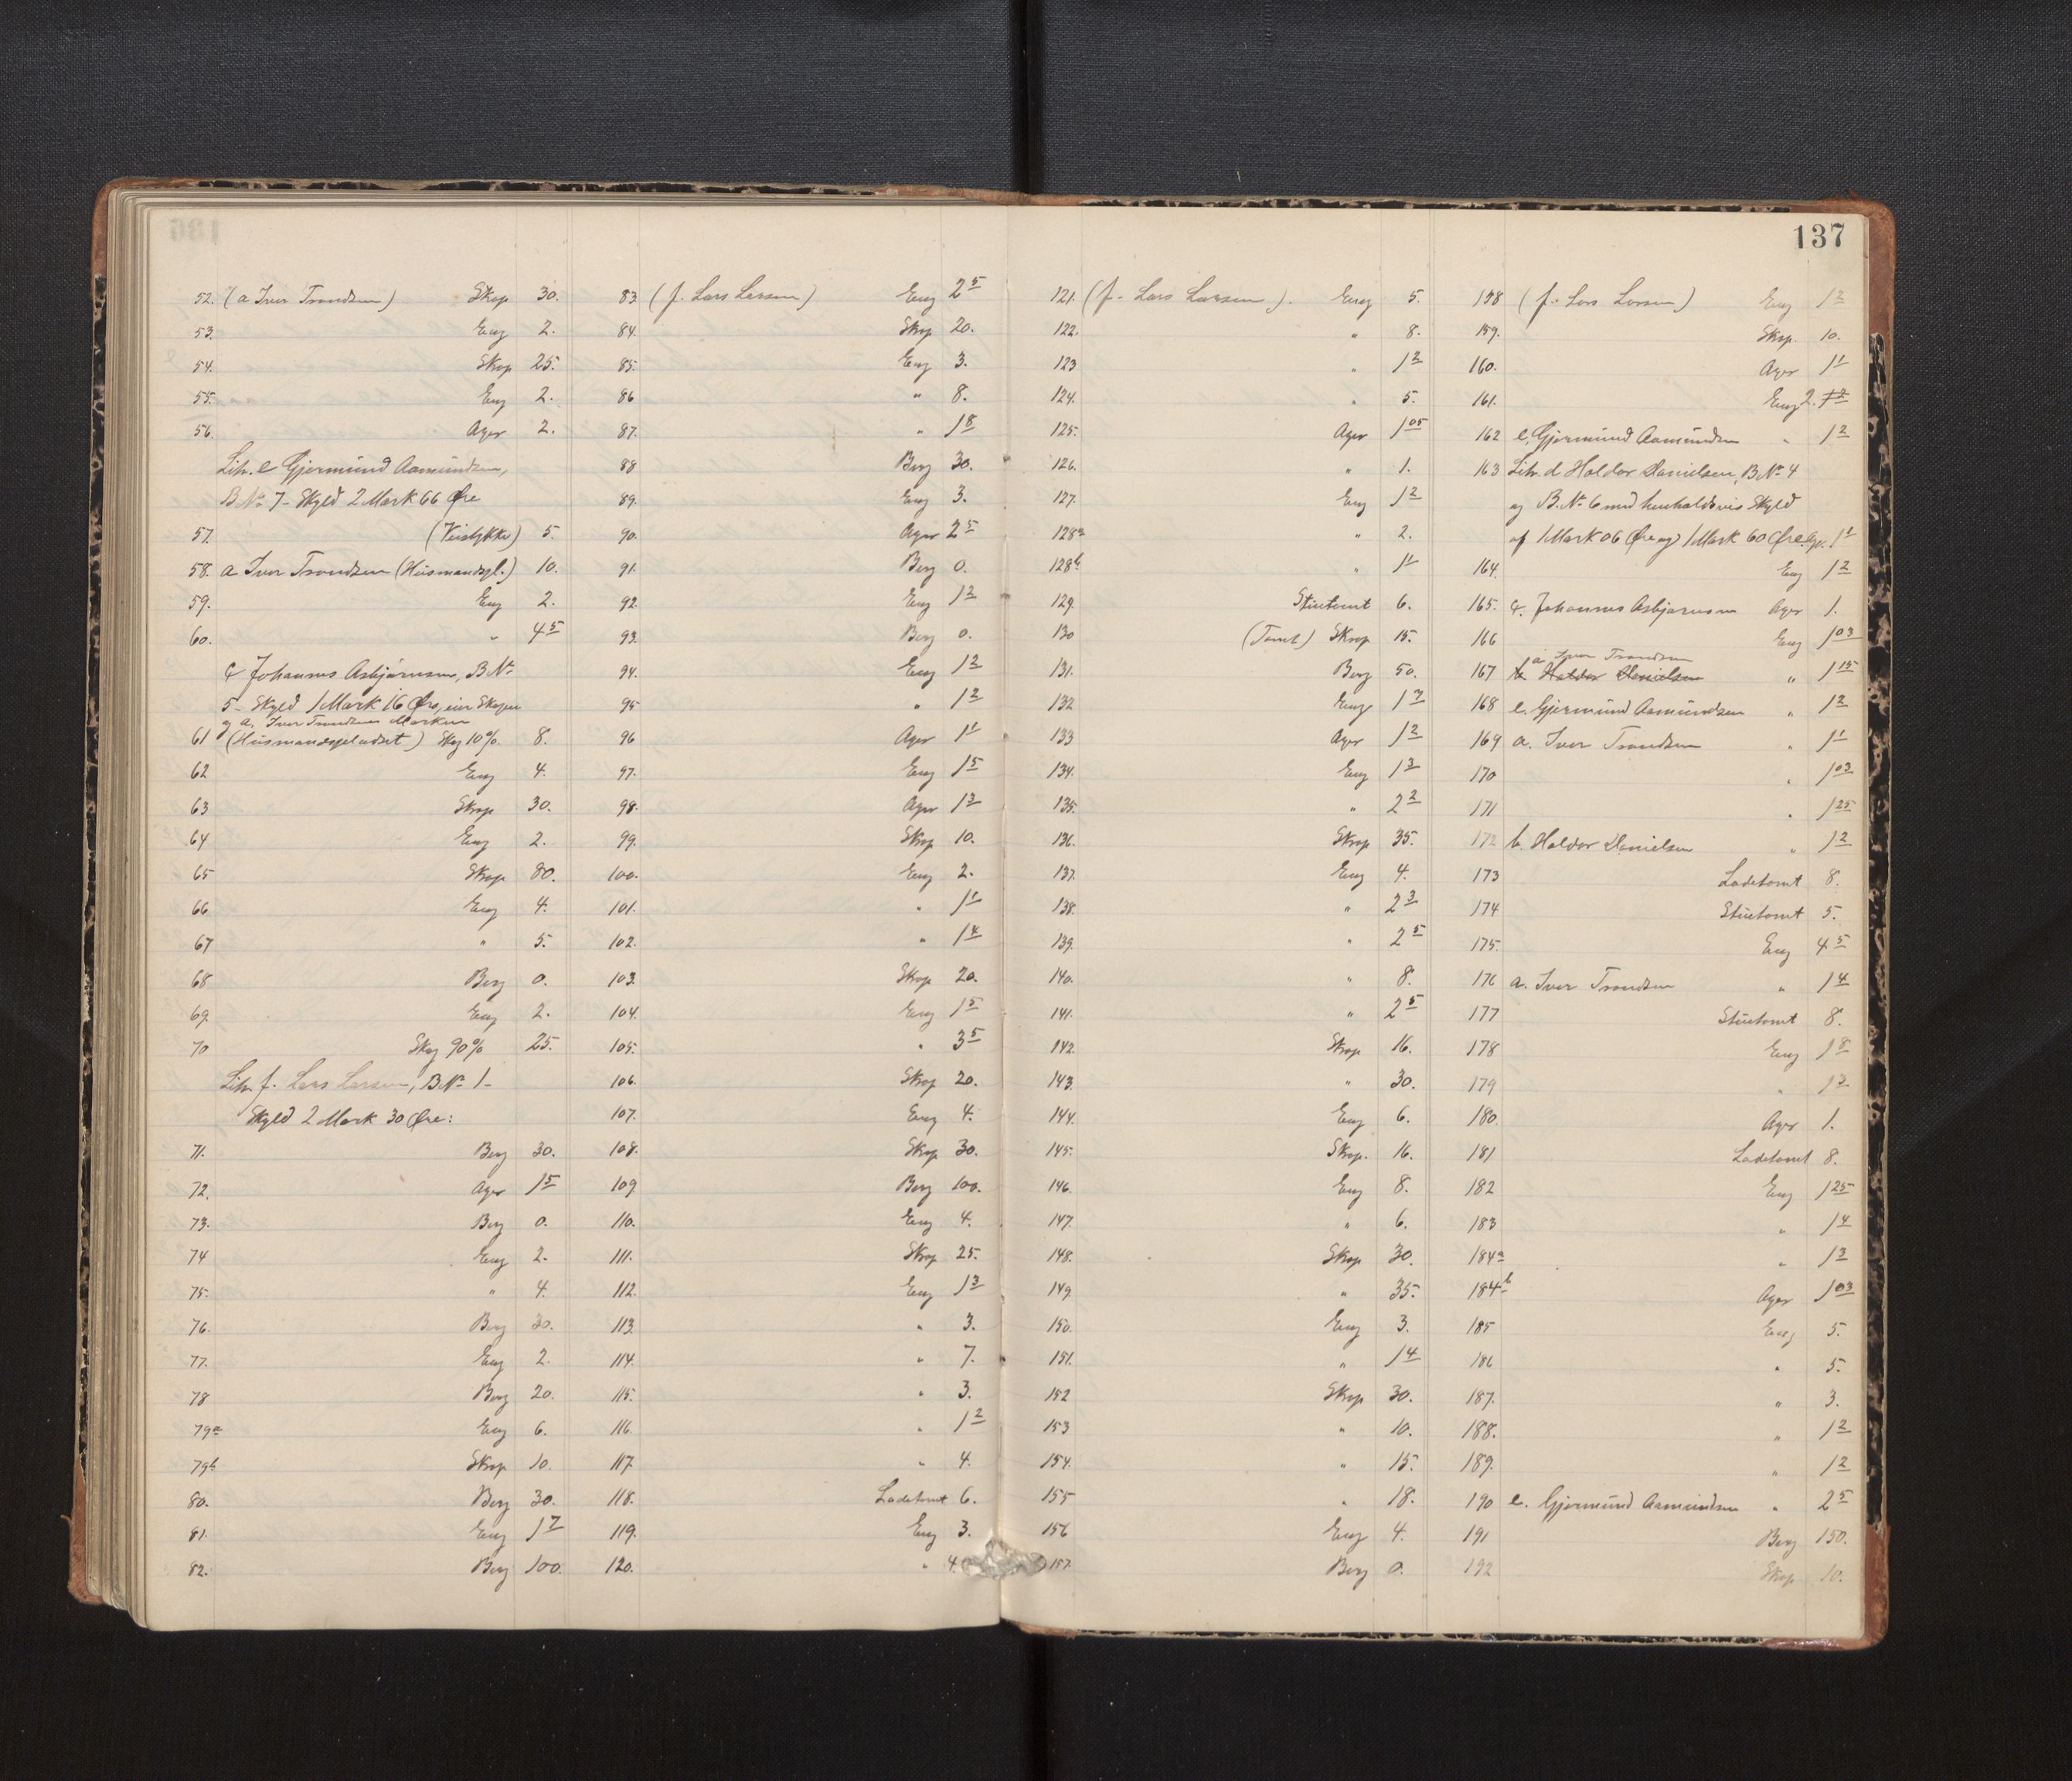 137
52. (a Iver Trondsen) Skop 30.
53. Eng 2.
54. Skop 25.
55. Eng 2.
56. Ager 2.
Litr. e Gjermund Aamundsen,
B№ 7 - Skyld 2 Mark 66 Øre
57. 5.
58. a Iver Trondsen (Husmandspl.) 10.
59. Eng 2.
60. " 4 5
c Johannes Asbjørnsen, B№
5 - Skyld 1 Mark 16 Øre, eier Skogen
og a. Iver Trondsen Marken
61 (Husmandspladset) Skog 10%. 8.
62 Eng 4.
63 Skop 30.
64 Eng 2.
65 Skop 80.
66 Eng 4.
67 " 5.
68 Berg 0.
69. Eng 2.
70 Skog 90% 25.
Litr. f. Lars Larsen, B№ 1-
Skyld 2 Mark 30 Øre:
71. Berg 30.
72. Ager 1 5
73. Berg 0.
74 Eng 2.
75. " 4.
76. Berg 30.
77. Eng 2.
78 Berg 20.
79a Eng 6.
79b Skop 10.
80. Berg 30.
81. Eng 1 7
82. Berg 100.
83 (f. Lars Larsen) Eng 2 5
84. Skop 20.
85. Eng 3.
86 " 8.
87. " 1 8
88 Berg 30.
89. Eng 3.
90. Ager 2 5
91. Berg 0.
92. Eng 1 2
93. Berg 0.
94. Eng 1 2
95 " 1 2
96 Ager 1 1
97. Eng 1 5
98. Ager 1 2
99. Skop 10.
100. Eng 2.
101. " 1 1
102. " 1 4
103. Skop 20.
104. Eng 1 5
105. " 3 5
106. Skop 20.
107. Eng 4.
108. Skop 30.
109 Berg 100.
110. Eng 4.
111. Skop 25.
112. Eng 1 3
113. " 3.
114. " 7.
115. " 3.
116. " 1 2
117. " 4.
118. Ladetomt 6.
119. Eng 3.
120. " 4.
121. (f. Lars Larsen). Eng 5.
122. " 8.
123 " 1 2
124. " 5.
125. Ager 1 05
126. " 1.
127. Eng 1 2
128a " 2.
128b " 1 1
129. Stuetomt 6.
130 (Tomt) Skop 15.
131. Berg 50.
132 Eng 1 3
133 Ager 1 2
134. Eng 1 3
135. " 2 2
136. Skop 35.
137. Eng 4.
138. " 2 3
139. " 2 5
140. " 8.
141. " 2 5
142. Skop 16.
143. " 30.
144. Eng 6.
145. Skop. 16.
146. Eng 8.
147. " 6.
148. Skop 30.
149. " 35.
150. Eng 3.
151. " 1 4
152 Skop 30.
153 " 10.
154. " 15.
155 " 18.
156 Eng 4.
157. Berg 0.
158 (f. Lars Larsen) Eng 1 2
159. Skop. 10.
160. Ager 1 1
161. Eng 2. 1 2
162 e. Gjermund Aamundsen " 1 2
163 Litr. d Haldor Danielsen, B№ 4
og B.№ 6 med henholdsvis Skyld
af 1 Mark 06 Øre og 1 Mark 60 Øre. Ager 1 1
164. Eng 1 2
165. c. Johannes Asbjørnsen Ager 1.
166 Eng 1 03
a Iver Trondsen
167 b. Haldor Danielsen " 1 15
168 e. Gjermund Aamundsen " 1 2
169 a. Iver Trondsen " 1 1
170 " 1 03
171 " 1 25
172 b. Haldor Danielsen " 1 2
173 Ladetomt 8.
174 Stuetomt 5.
175. Eng 4 5
176 a. Iver Trondsen " 1 4
177 Stuetomt 8.
178 Eng 1 8
179 " 1 2
180. Ager 1.
181 Ladetomt 8.
182 Eng 1 25
183 " 1 4
184a " 1 3
184b Ager 1 03
185 Eng 5.
186 " 5.
187. " 3.
188. " 1 2
189. " 1 2
190 e. Gjermund Aamundsen " 2 5
191 Berg 150.
192 Skop 10.